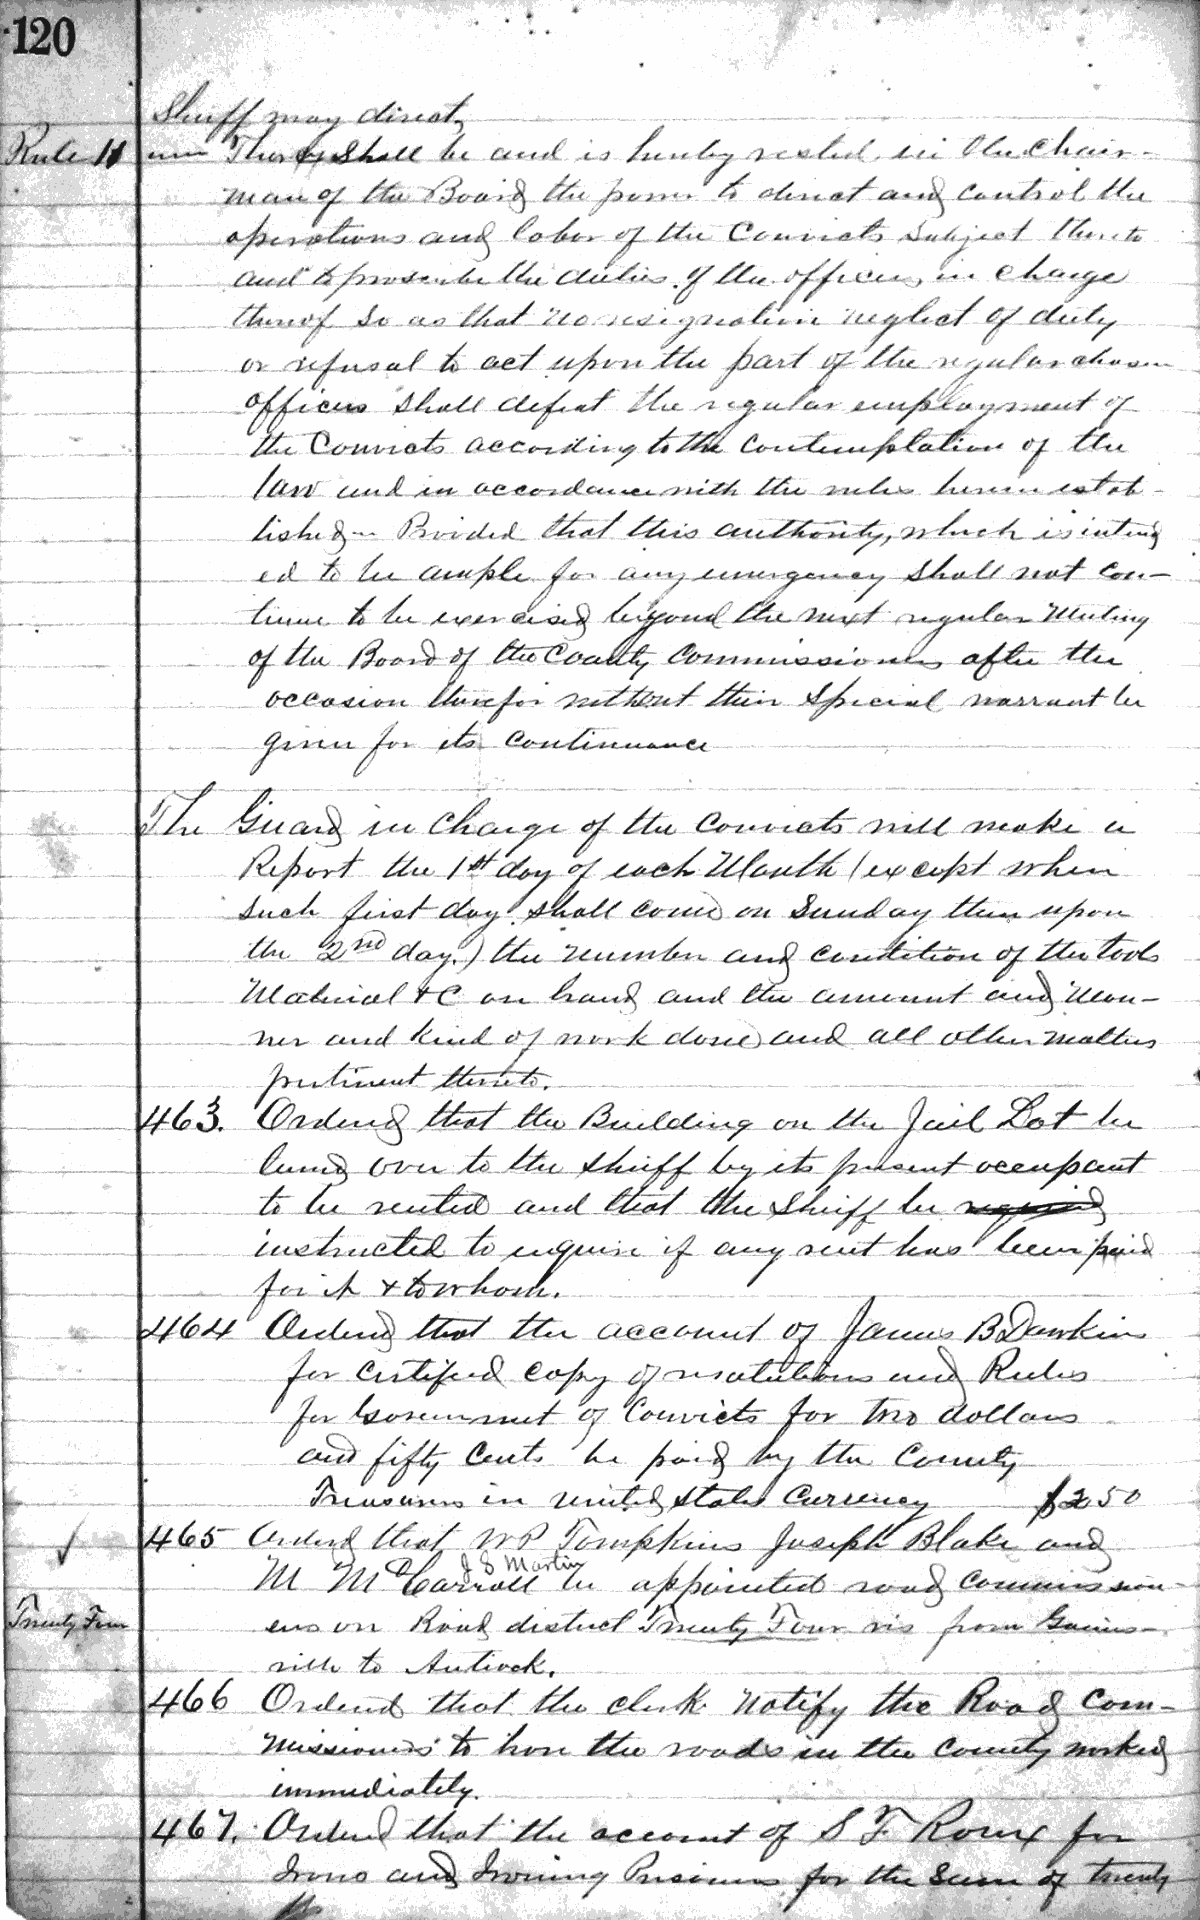 120
Sheriff may direct,
Rule 11 There shall be and is hereby vested in the Chair-
man of the Board the power to direct and control the
operations and labor of the Convicts Subject thereto
and to prescribe the duties of the officers in charge
thereof So as that no resignation neglect of duty
or refusal to act upon the part of the regular chosen
officers shall defeat the regular employment of
the Convicts according to the contemplation of the
law and in accordance with the rules herein estab-
lished — Provided that this authority, which is intend
ed to be ample for any emergency shall not con-
tinue to be exercised beyond the next regular Meeting
of the Board of the County Commissioners after the
occasion therefor without their Special warrant be
given for its continuance
The Guard in charge of the Convicts will make a
Report the 1st day of each Month (except when
such first day shall come on Sunday then upon
the 2nd day.) the number and condition of the tools
Material &C on hand and the amount and Man-
ner and kind of work done and all other matters
pertinent thereto.
463. Ordered that the Building on the Jail Lot be
turned over to the sheriff by its present occupant
to be rented and that the Sheriff be required
instructed to enquire if any rent has been paid
for it & to whom.
464 Ordered that the account of James B Dawkins
for certified copy of resolutions and Rules
for Government of Convicts for two dollars
and fifty Cents be paid by the County
Treasurer in United States Currency $2 50
465 Ordered that W P Tompkins Joseph Blake and
J S Martin
M McCarroll be appointed road commission-
Twenty Four ers on Road district Twenty Four vis from Gaines-
ville to Antioch.
466 Ordered that the clerk Notify the Road Com-
missioners to have the roads in the County worked
immediately.
467. Ordered that the account of S F Roux for
Irons and Ironing Prisoners for the Sum of twenty